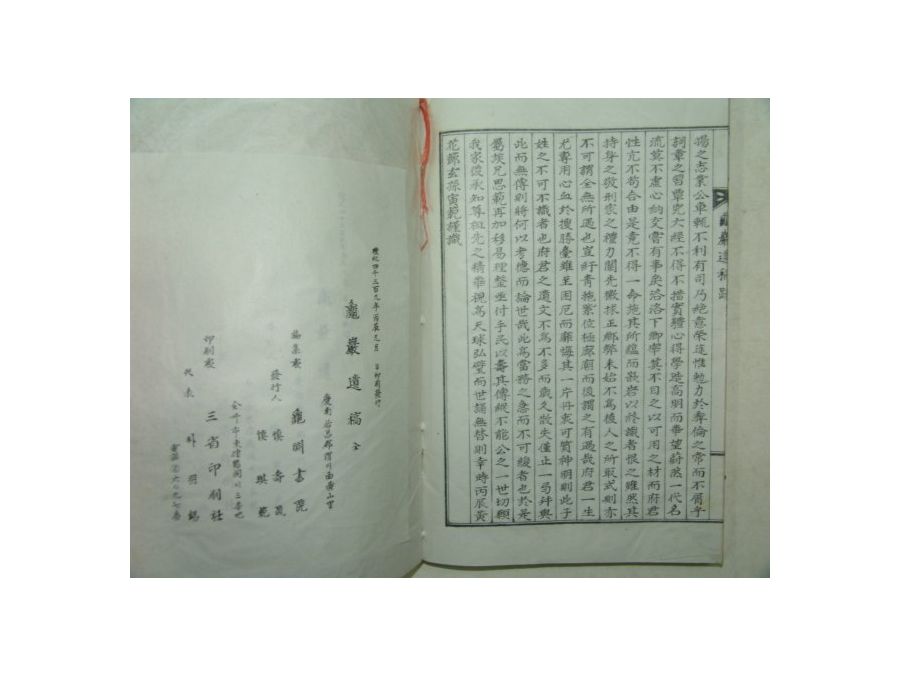 揚之志業公車輒不利有司乃絶意榮途惟勉力於彛倫之常而不屑乎
詞章之習覃究大經不得不措實體心得學造高明而華望蔚然一代名
流莫不虛心納交嘗有事矣洛洛下卿宰莫不目之以可用之材而府君
性亢不苟合由是竟不得一命施其所蘊而嚴岩以終識者恨之雖然其
持身之敬刑家之禮力闢先徽抹正鄕弊未始不爲後人之所取式則亦
不可謂全無所遇也豈紆靑拖紫位極廊廟而後謂之有遇哉府君一生
尤專用心血於搜勝臺雖至困厄而靡悔其一片丹衷可質神明則此子
姓之不可不識者也府君之遺文不爲不多而歲久散失僅止一弓幷與
此而無傳則將何以考德而論世哉此爲當務之急而不可緩者也於是
屬族兄思範再加移易理整亟付手民以壽其傳縱不能公之一世切願
我家後承知尊祖先之精華視爲天球弘璧而世誦無替則幸時丙辰黃
花節玄孫寅範謹識
龜巖遺稿跋
檀紀四千三百九年丙辰九月 日印刷發行
龜巖遺稿 全
慶南居昌郡渭川面黃山里
編集處 龜淵書院
發行人 愼
愼 範
印刷處 三省印刷社
代表